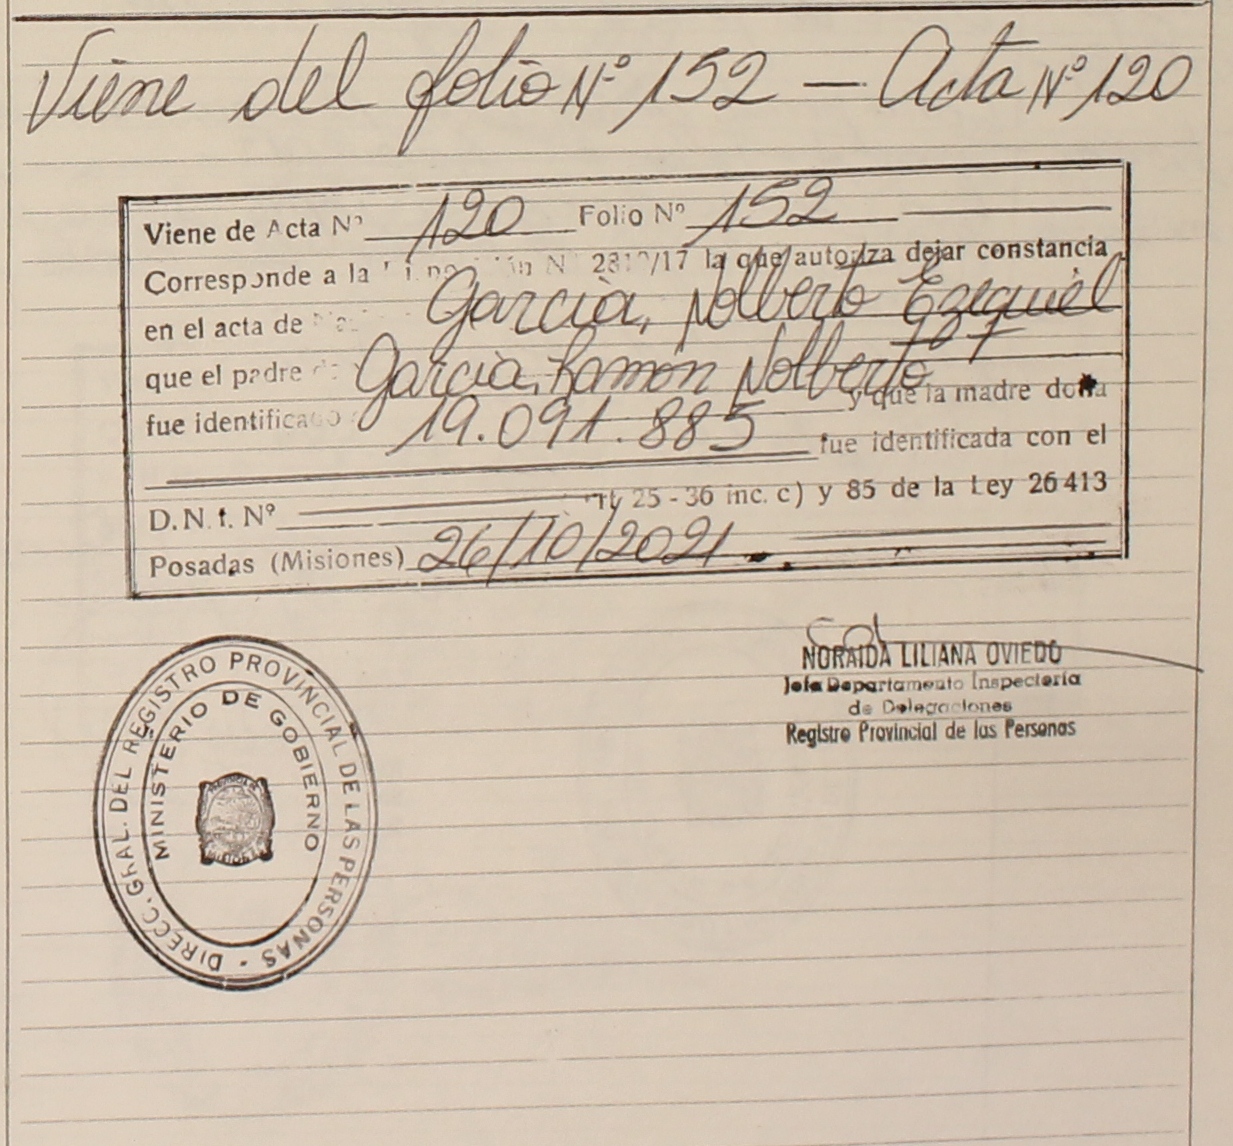 Viene del folio Nº 152 — Acta Nº 120
Viene de Acta Nº 120 Folio Nº 152
Corresponde a la /17 la que autoriza dejar constancia
en el acta de García, Nolberto Ezequiel
que el padre García, Ramón Nolberto
fue identificado 19.091.885 y que la madre doña
fue identificada con el
D.N.I. Nº 25 - 36 inc. c) y 85 de la Ley 26413
Posadas (Misiones) 26/10/2021
NORAIDA LILIANA OVIEDO
Jefa Departamento Inspectoría
de Delegaciones
Registro Provincial de las Personas
DIRECC. GRAL. DEL REGISTRO PROVINCIAL DE LAS PERSONAS -
MINISTERIO DE GOBIERNO